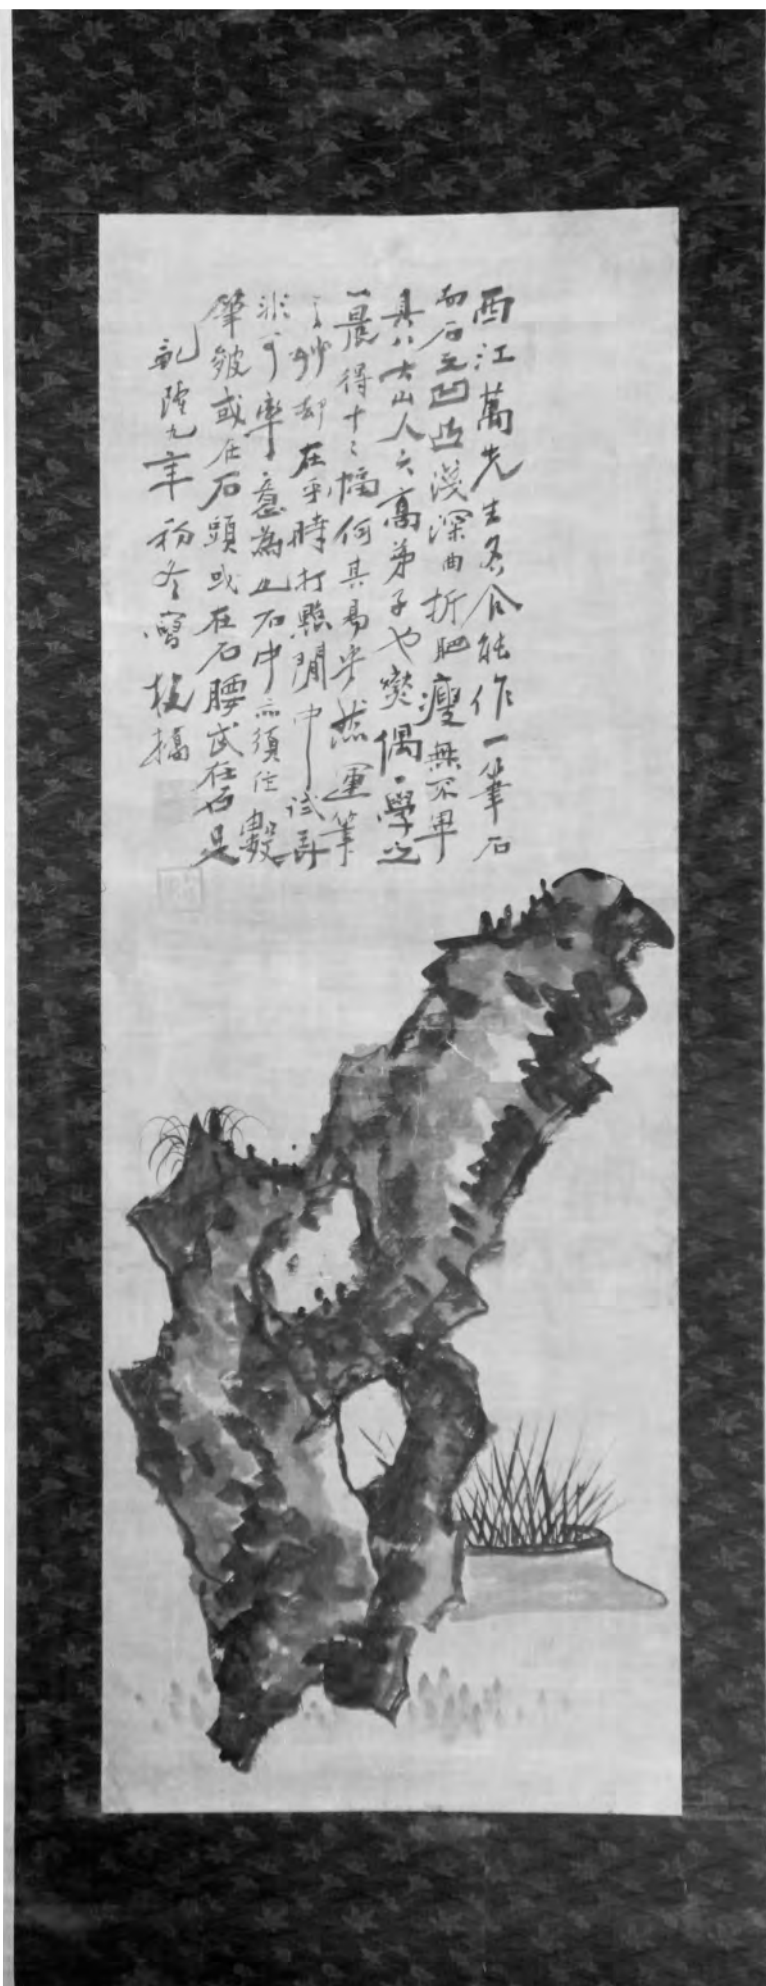 西江萬先生名个能作一筆石
而石之凹凸淺深曲折肥瘦無不畢
具八大山人之高弟子也燮偶一學之
一晨得十二幅何其易乎然運筆
之妙却在平時打點閒中試弄
非可率意為也石中亦須作數
筆皴或在石頭或在石腰或在石足
乾隆九年初冬寫板橋